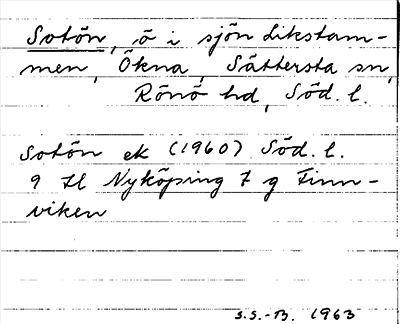 Sotön, ö i sjön Likstam-
men, Ökna, Sättersta sn,
Rönö hd, Söd. l.
Sotön ek (1960) Söd. l.
9 H Nyköping 7 g Finn-
viken
S.S.-B. 1963